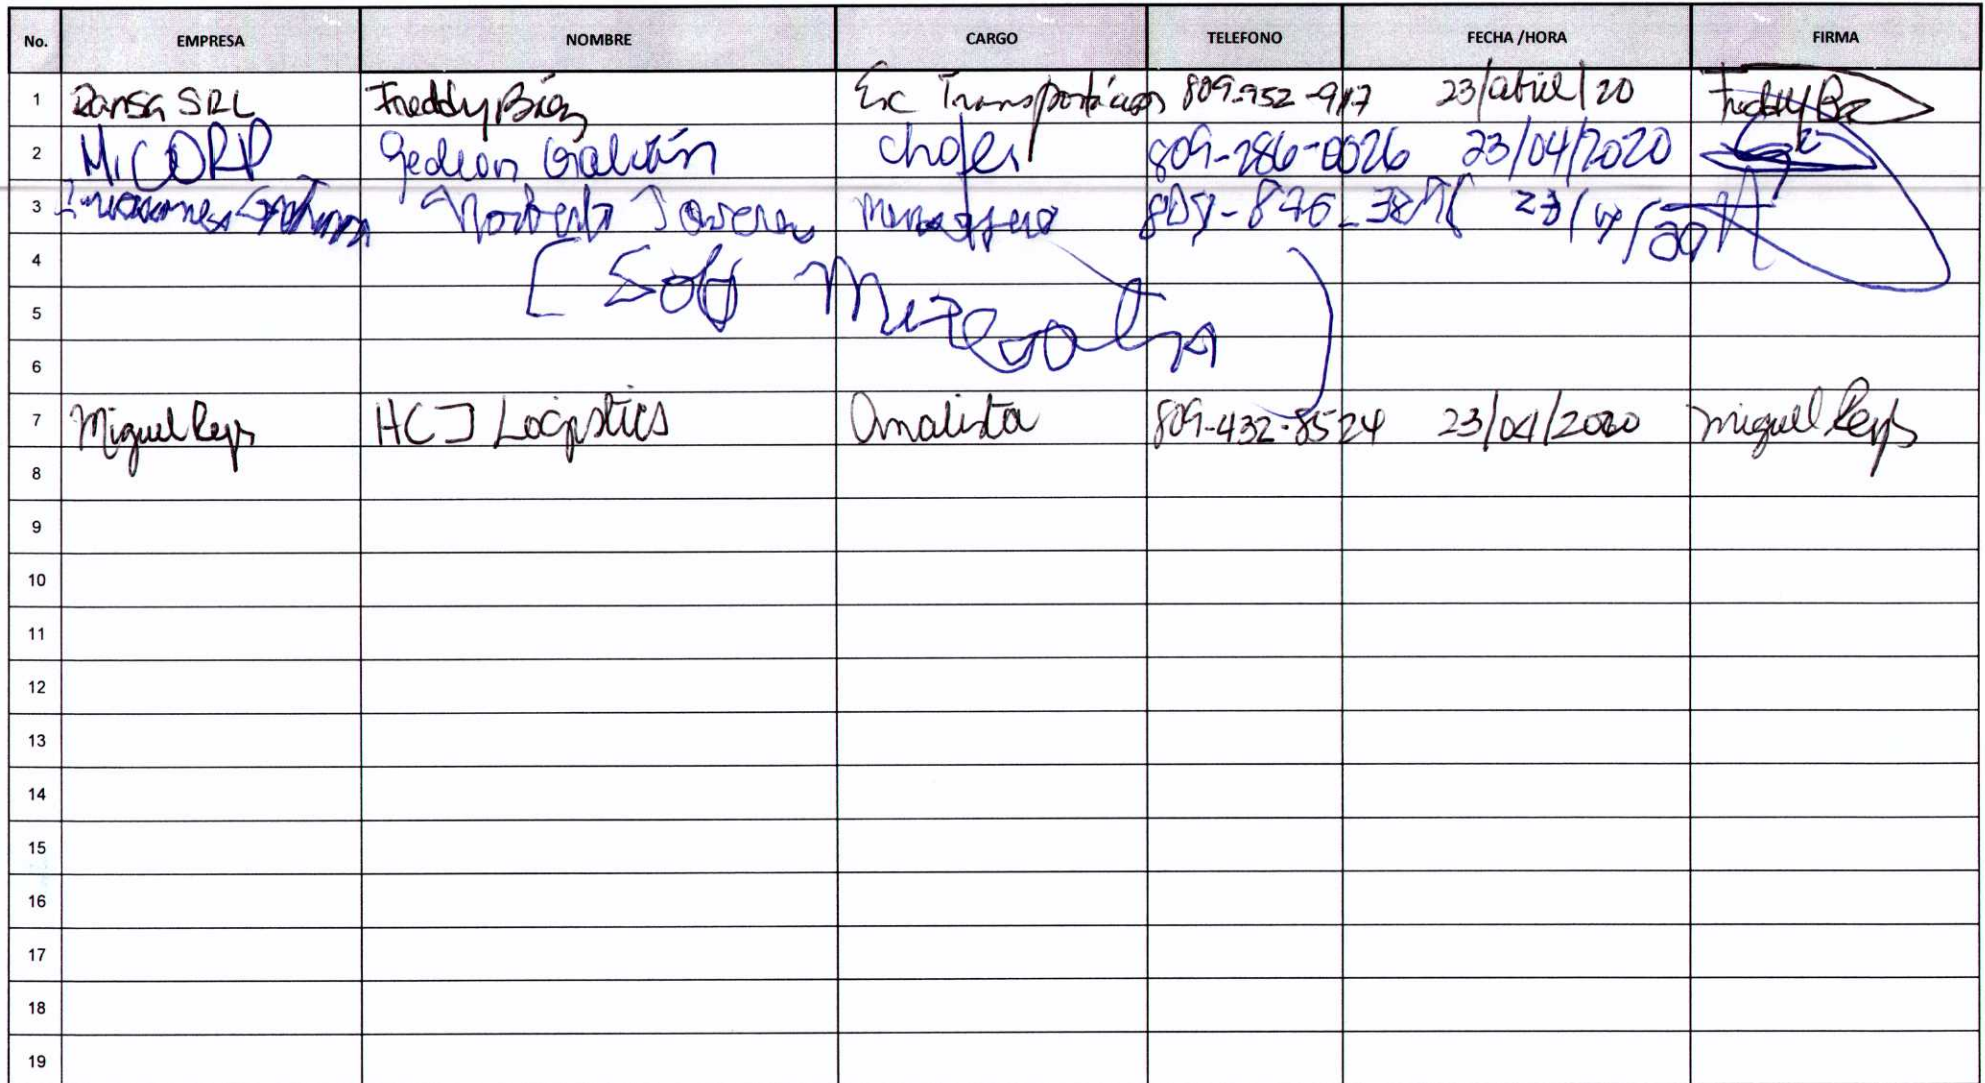 No. EMPRESA NOMBRE CARGO TELEFONO FECHA /HORA FIRMA
1 Ransa SRL Freddy Báez Enc 809-952-917 23/abril/20 Freddy
2 MICORP Gedeon Galván chofer 809-286-0026 23/04/2020
3 Norberto Tavera 23/4/20
4
5
6
7 Miguel Reyes HCJ Logistics Analista 809-432-8524 23/04/2020 Miguel Reyes
8
9
10
11
12
13
14
15
16
17
18
19